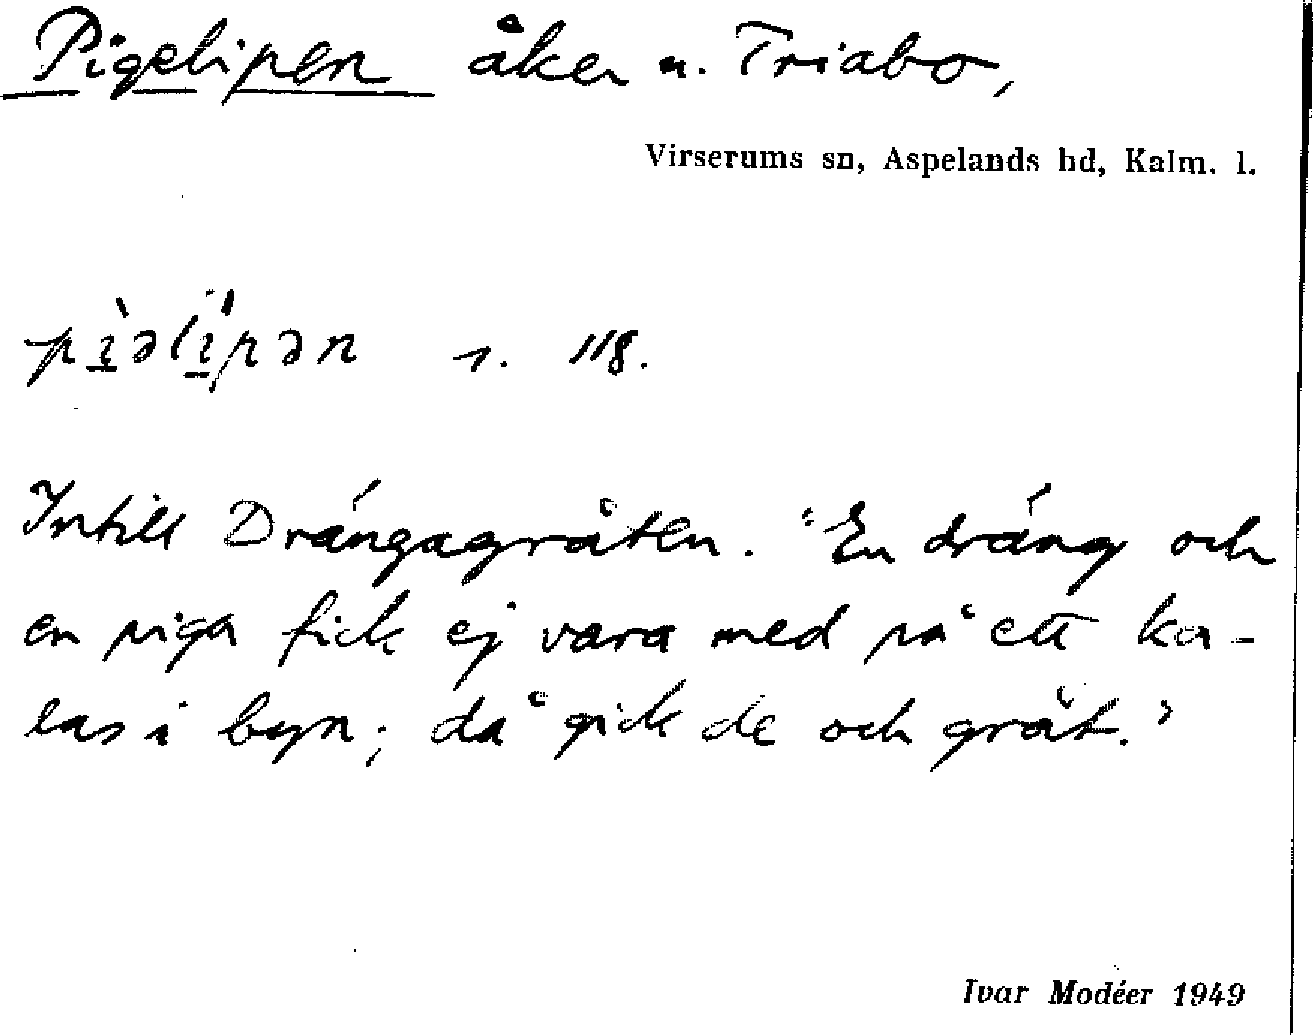 Pigelipen åker n. Triabo,
Virserums sn, Aspelands hd, Kalm. l.
pìəlípən s. 118.
Intill Drängagråten. "En dräng och
en piga fick ej vara med på ett ka-
las i byn; då gick de och grät."
Ivar Modéer 1949